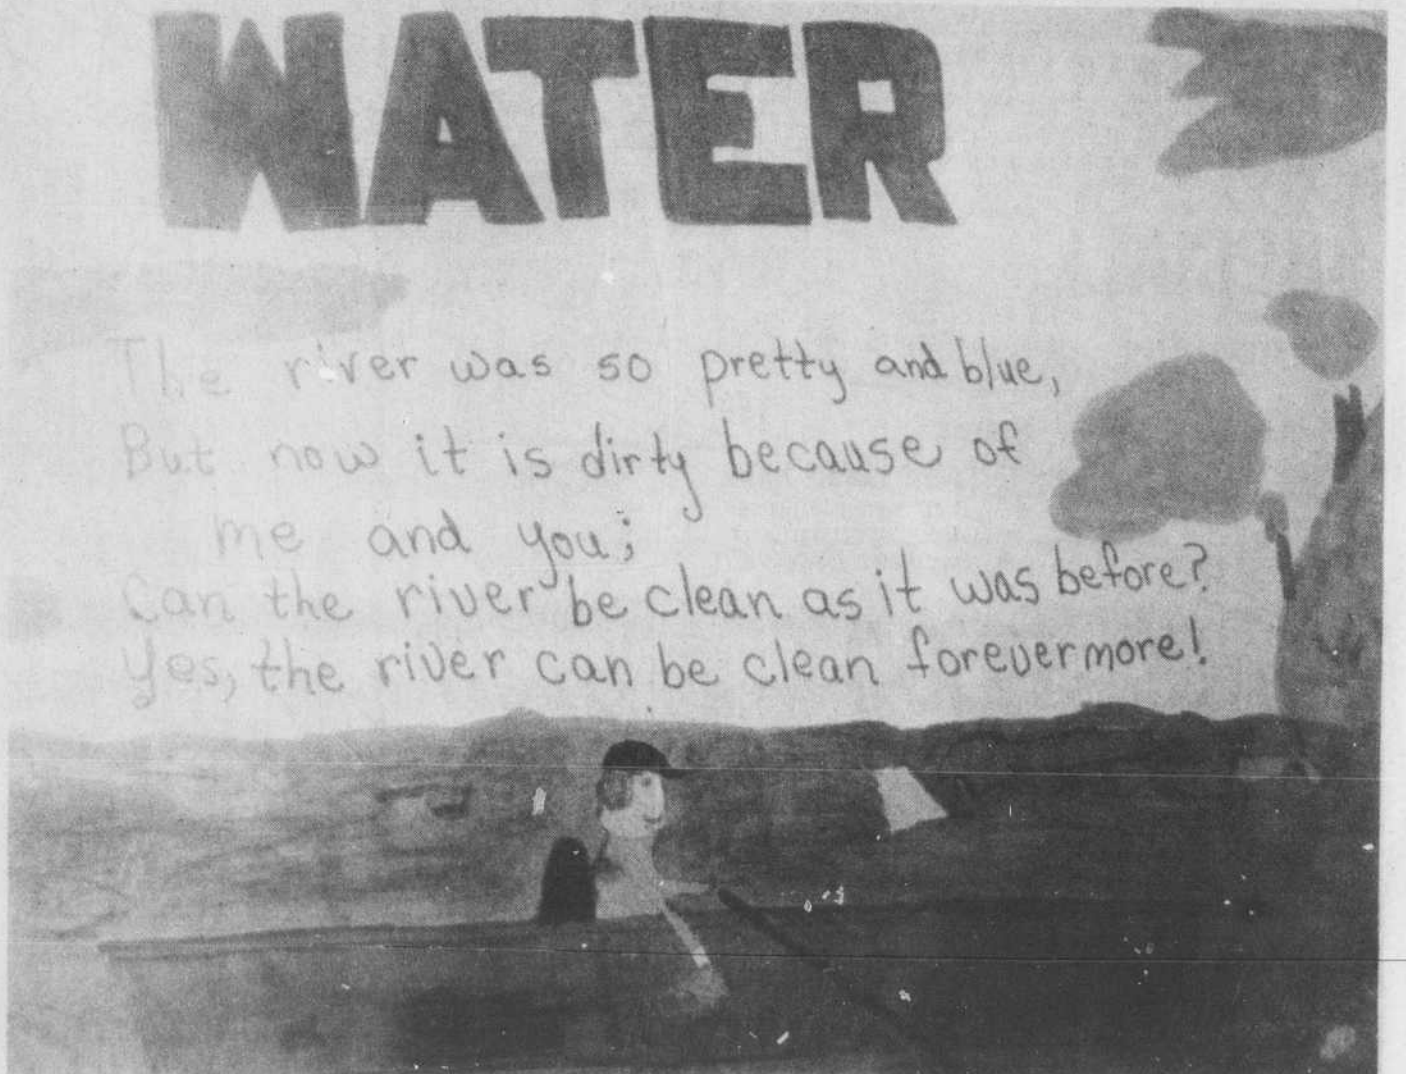 WATER
The river was so pretty and blue,
But now it is dirty because of
me and you;
Can the river be clean as it was before?
Yes, the river can be clean forevermore!